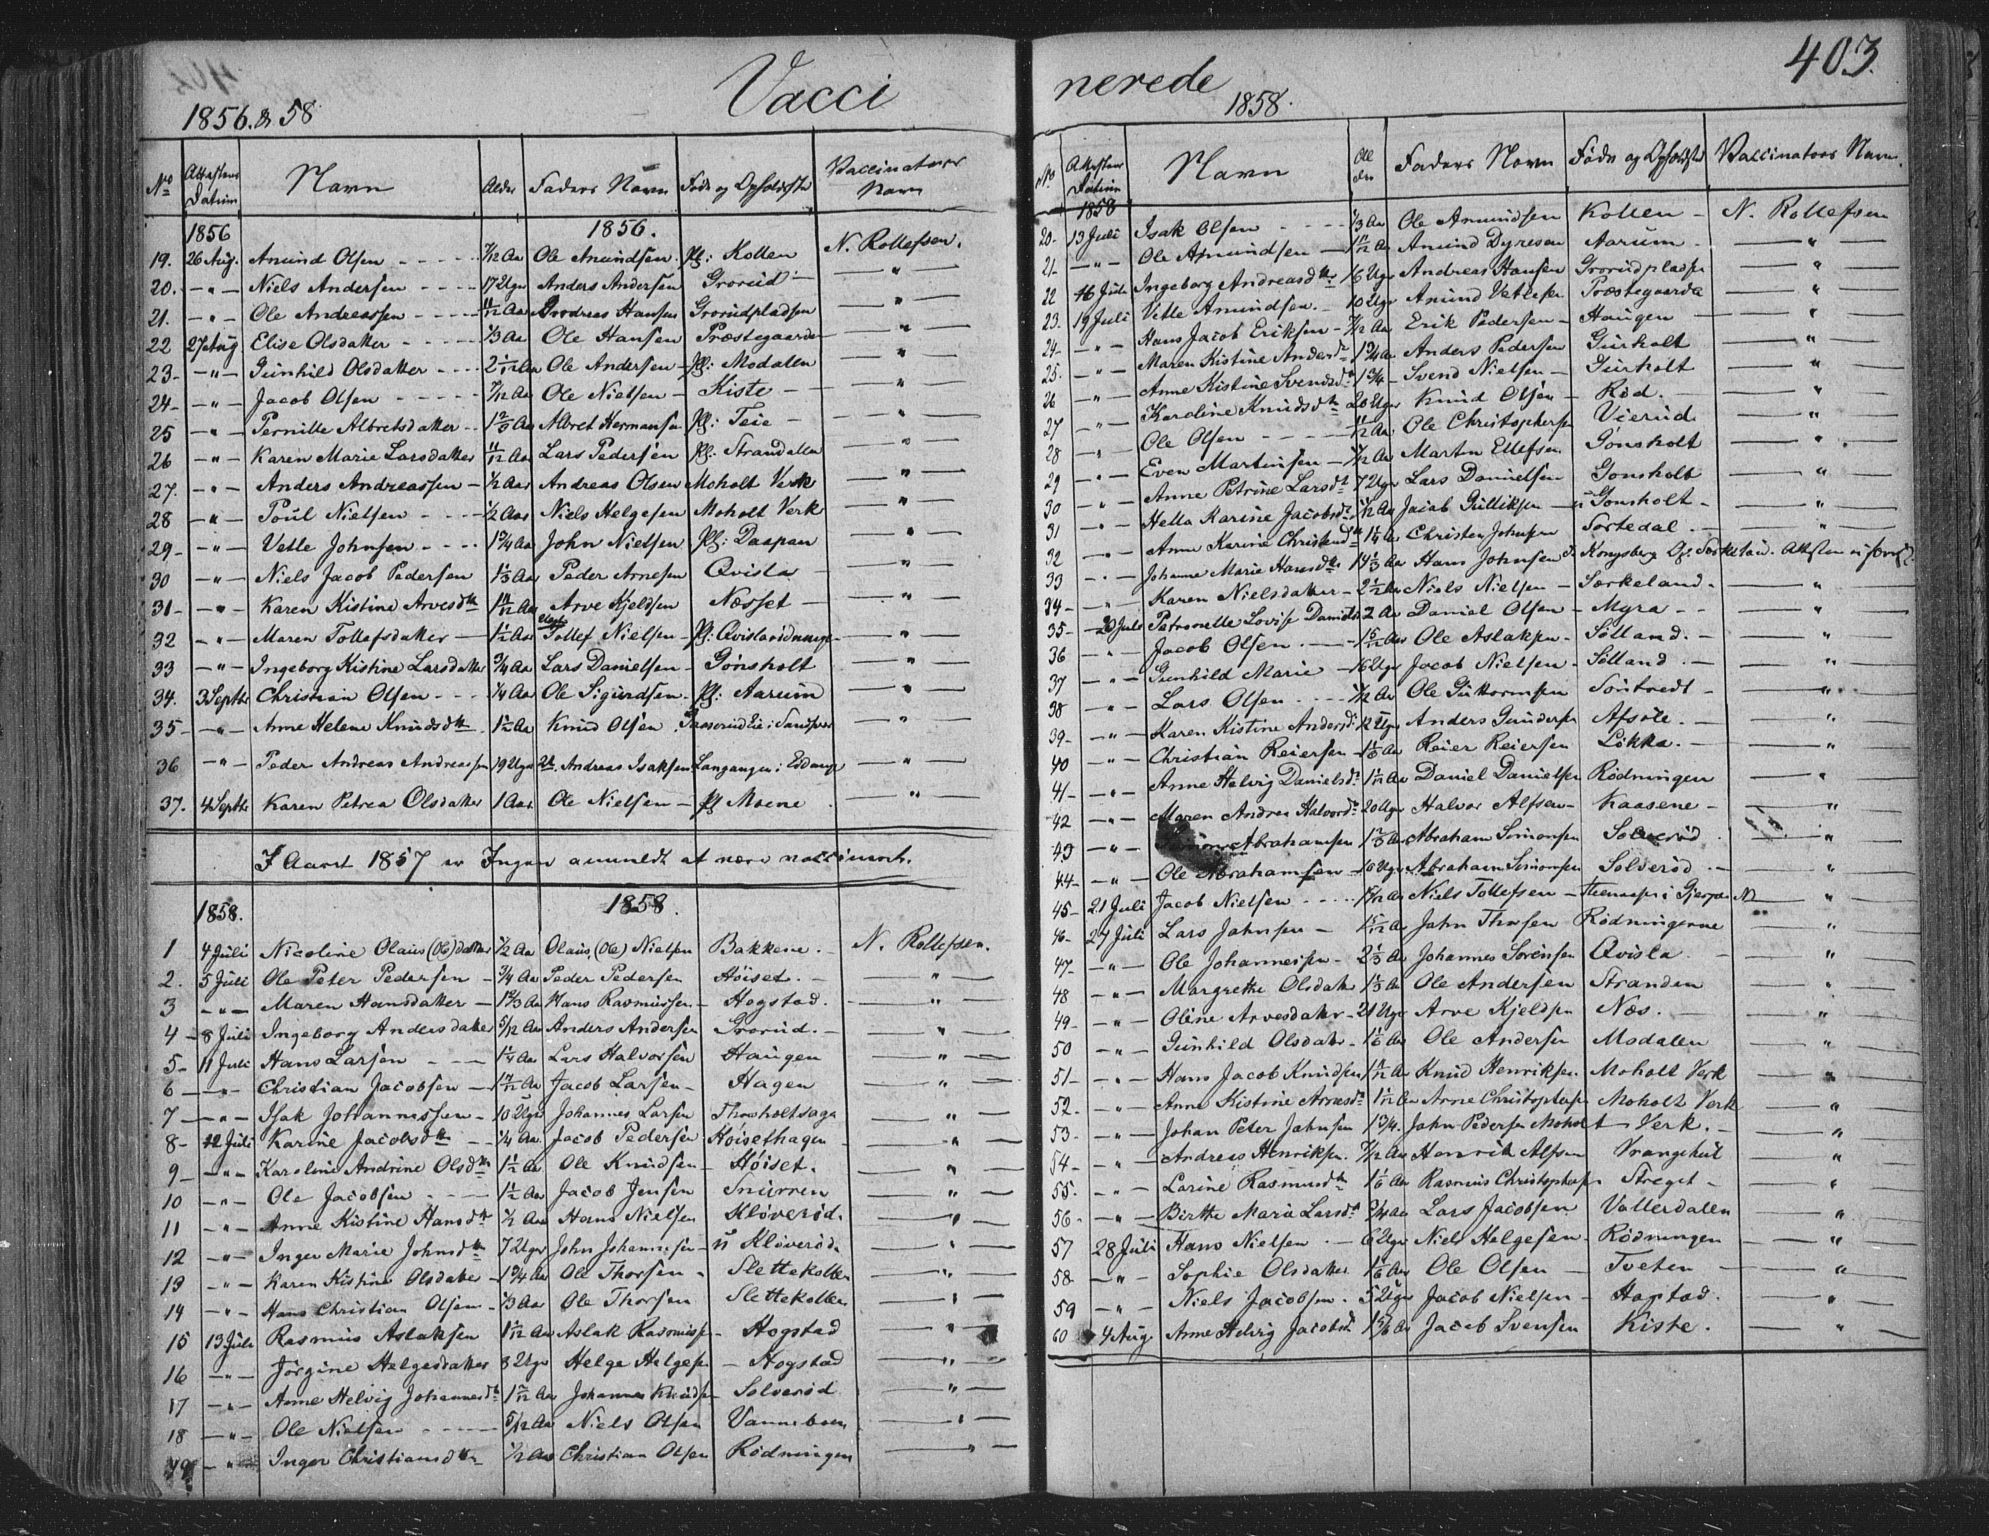 Vaccinerede
403.
1856. & 58
No Attestens Datum Navn Alder Faders Navn Føde og Opholdste Vaccinateurs Navn
1856 1856.
19. 26 Aug. Amund Olsen 7/12 Aar Ole Amundsen pl: Kollen N. Rollefsen.
20. -"- Niels Andersen 17 Uger Anders Andersen Grorud -"-
21. -"- Ole Andreassen 11/12 Aar Andreas Hansen Grorudpladsen -"-
22 27 Aug Elise Olsdatter 1/3 Aar Ole Hansen Præstegaarden -"-
23- -"- Gunhild Olsdatter 2 1/12 Aar Ole Andersen pl: Modalen -"-
24- -"- Jacob Olsen 7/12 Aar Ole Nielsen Kiste -"-
25 -"- Pernille Albretsdatter Albret Hermansen pl: Teie -"-
26 -"- Karen Marie Larsdatter 11/12 Aar Lars Pedersen pl: Strandalen -"-
27. -"- Anders Andreassen 1/2 Aar Andreas Olsen Moholt Verk -"-
28 -"- Poul Nielsen 1/2 Aar Niels Helgesen Moholt Verk -"-
29- -"- Vetle Johnsen 1 3/4 Aar John Nielsen pl: Daapan -"-
30 -"- Niels Jacob Pedersen 1 1/3 Aar Peder Arnesen Qvisla -"-
31- -"- Karen Kistine Arvesdtr 1 11/12 Aar Arve Kjeldsen Næsset -"-
32 -"- Maren Tollefsdatter 1 1/2 Aar Tollef Nielsen pl: Qvislarødningen -"-
33 -"- Ingeborg Kistine Larsdatter 3/4 Aar Lars Danielsen Gonsholt -"-
34. 3 Septbr Christian Olsen 1/4 Aar Ole Sigurdsen pl: Aarum -"-
35- -"- Anne Helene Knudsdtr 1 1/2 Aar Knud Olsen -"-
36 -"- Peder Andreas Andreassen 19 Uger Andreas Isaksen Langangen i Eidanger -"-
37. 4 Septbr Karen Petrea Olsdatter 1 Aar Ole Nielsen pl Moene -"-
I Aaret 1857 er Ingen anmeldt at være vaccineret.
1858. 1858.
1 4 Juli Nicoline Olaus (Ole)datter 1/2 Aar Olaus (Ole) Nielsen Bakkene. N. Rollefsen.
2. 5 Juli Ole Peter Pedersen 3/4 Aar Peder Pedersen Høiset. -"-
3 -"- Maren Hansdatter 1 2/3 Aar Hans Rasmussen Hogstad. -"-
4 8 Juli Ingeborg Andersdatter 5/12 Aar Anders Andersen Grorud. -"-
5- 11 Juli Hans Larsen 1 1/4 Aar Lars Halvorsen Haugen -"-
6 -"- Christian Jacobsen Jacob Larsen Hagen -"-
7 -"- Isak Johannessen 10 Uger Johannes Larsen Thorholtsaga -"-
8- 12 Juli Karine Jacobsdtr 1/4 Aar Jacob Pedersen Høisethagen -"-
9 -"- Karoline Andrine Olsdtr 1 1/2 Aar Ole Knudsen Høiset. -"-
10 -"- Ole Jacobsen 1 1/2 Aar Jacob Jensen Snurren -"-
11 -"- Anne Kistine Hansdtr 1/2 Aar Hans Nielsen Kløverød. -"-
12 -"- Inger Marie Johnsdtr 7 Uger John Johannesen Kløverød -"-
13 -"- Karen Kistine Olsdatter 1 3/4 Aar Ole Thorsen Slettekollen -"-
14 -"- Hans Christian Olsen 1/3 Aar Ole Thorsen Slettekollen -"-
15 13 Juli Rasmus Aslaksen Aslak Rasmussen Hogstad -"-
16 -"- Jørgine Helgesdatter 8 Uger Helge Helgesen Hogstad -"-
17 -"- Anne Helvig Johannesdtr Johannes Knudsen Solverød -"-
18 -"- Ole Nielsen 5/12 Aar Niels Olsen Vanneboen -"-
19 -"- Inger Christiansdtr 1/2 Aar Christian Olsen Rødningen -"-
1858.
No Attestens Datum Navn Alder Faders Navn Føde og Opholdste Vaccinateurs Navn.
1858
20- 13 Juli Isak Olsen 1/3 Aar Ole Amundsen Kollen N. Rollefsen
21- -"- Ole Amundsen Amund Dyresen Aarum -"-
22 16 Juli Ingeborg Andreasdtr 16 Uger Andreas Hansen Grorudpladsen -"-
23. 19 Juli Vetle Amundsen 10 Uger Amund Vetlesen Præstegaarden -"-
24- -"- Hans Jacob Eriksen 7/12 Aar Erik Pedersen Haugen -"-
25. -"- Maren Kistine Andersdtr 1 3/4 Aar Anders Pedersen Gurholt -"-
26 -"- Anne Kistine Svendsdtr 1 3/4 Svend Nielsen Gurholt -"-
27 -"- Karoline Knudsdtr 20 Uger Knud Olsen Rød. -"-
28 -"- Ole Olsen 11/12 Aar Ole Christophersen Vierud -"-
29 -"- Even Martinsen Marten Ellefsen Gonsholt -"-
30 -"- Anne Petrine Larsdtr 7 Uger Lars Danielsen Gonsholt -"-
31 -"- Hella Karine Jacobsdtr Jacob Gulliksen Gonsholt -"-
32 -"- Anne Karine Christensdtr Christen Johnsen Tortedal -"-
33 -"- Johanne Marie Hansdtr 14 1/3 Aar Hans Johnsen F. Kongsberg
34- -"- Karen Nielsdatter 2 1/2 Aar Niels Nielsen Sørkeland. -"-
35- 20 Juli Petronelle Lovise Danielsdtr 2 Aar Daniel Olsen Myra -"-
36 -"- Jacob Olsen Ole Aslaksen Sølland. -"-
37 -"- Gunhild Marie 16 Uger Jacob Nielsen Sølland. -"-
38 -"- Lars Olsen Ole Guttormsen Tøntvedt -"-
39- -"- Karen Kistine Andersdtr 12 Uger Anders Gundersen Afsøle. -"-
40 -"- Christian Reiersen Reier Reiersen Løkka. -"-
41- -"- Anne Helvig Danielsdtr Daniel Danielsen Rødningen -"-
42 -"- Maren Andrea Halvorsdtr 20 Uger Halvor Alfsen Kaasene -"-
43 -"- Simon Abrahamsen 1 2/3 Aar Abraham Simonsen Solverød -"-
44- -"- Ole Abrahamsen 10 Uger Abraham Simonsen Solverød -"-
45- 21 Juli Jacob Nielsen Niels Tollefsen -"-
46- 27 Juli Lars Johnsen John Thorsen Rødningerne -"-
47- -"- Ole Johannessen 2 1/3 Aar Johannes Sørensen Qvisla -"-
48 -"- Margrethe Olsdatter 1 1/3 Aar Ole Andersen Stranden -"-
49- -"- Oline Arvesdatter 21 Uger Arve Kjeldsen Næs. -"-
50 -"- Gunhild Olsdatter 1 1/6 Aar Ole Andersen Modalen -"-
51- -"- Hans Jacob Knudsen Knud Henriksen Moholt Verk -"-
52. -"- Anne Kistine Arnesdtr Arne Christophersen Moholt Verk -"-
53- -"- Johan Peter Johnsen 1 3/4. John Pedersen Moholt Verk. -"-
54- -"- Andreas Henriksen 7/12 Aar Henrik Alfsen Vrangehul -"-
55. -"- Larine Rasmusdtr 1 1/6 Aar Rasmus Christophersen Streget -"-
56- -"- Birthe Maria Larsdtr Lars Jacobsen Vallerdalen -"-
57 28 Juli Hans Nielsen 6 Uger Niels Helgesen Rødningen -"-
58- -"- Sophie Olsdatter 1 1/6 Aar Ole Olsen Tveten -"-
59 -"- Niels Jacobsen 5 Uger Jacob Nielsen Hogstad. -"-
60 4 Aug Anne Helvig Jacobsdtr 1 5/6 Aar Jacob Svensen Kiste. -"-